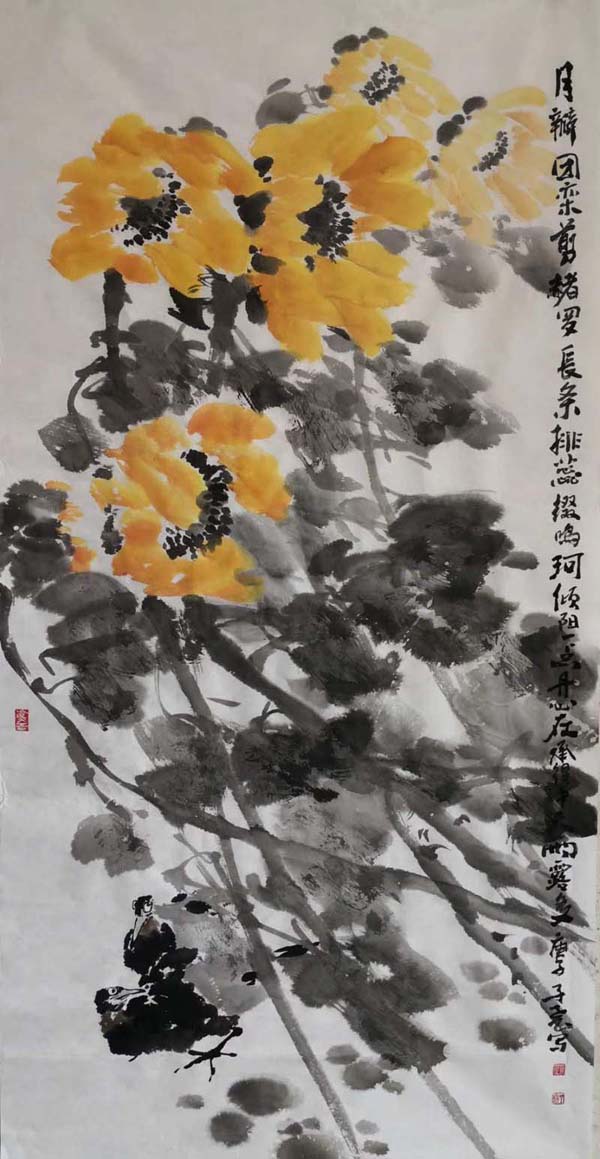 月瓣团栾剪赭罗長条排蕊缀鸣珂倾阳一点丹心在承得中天雨露多 写